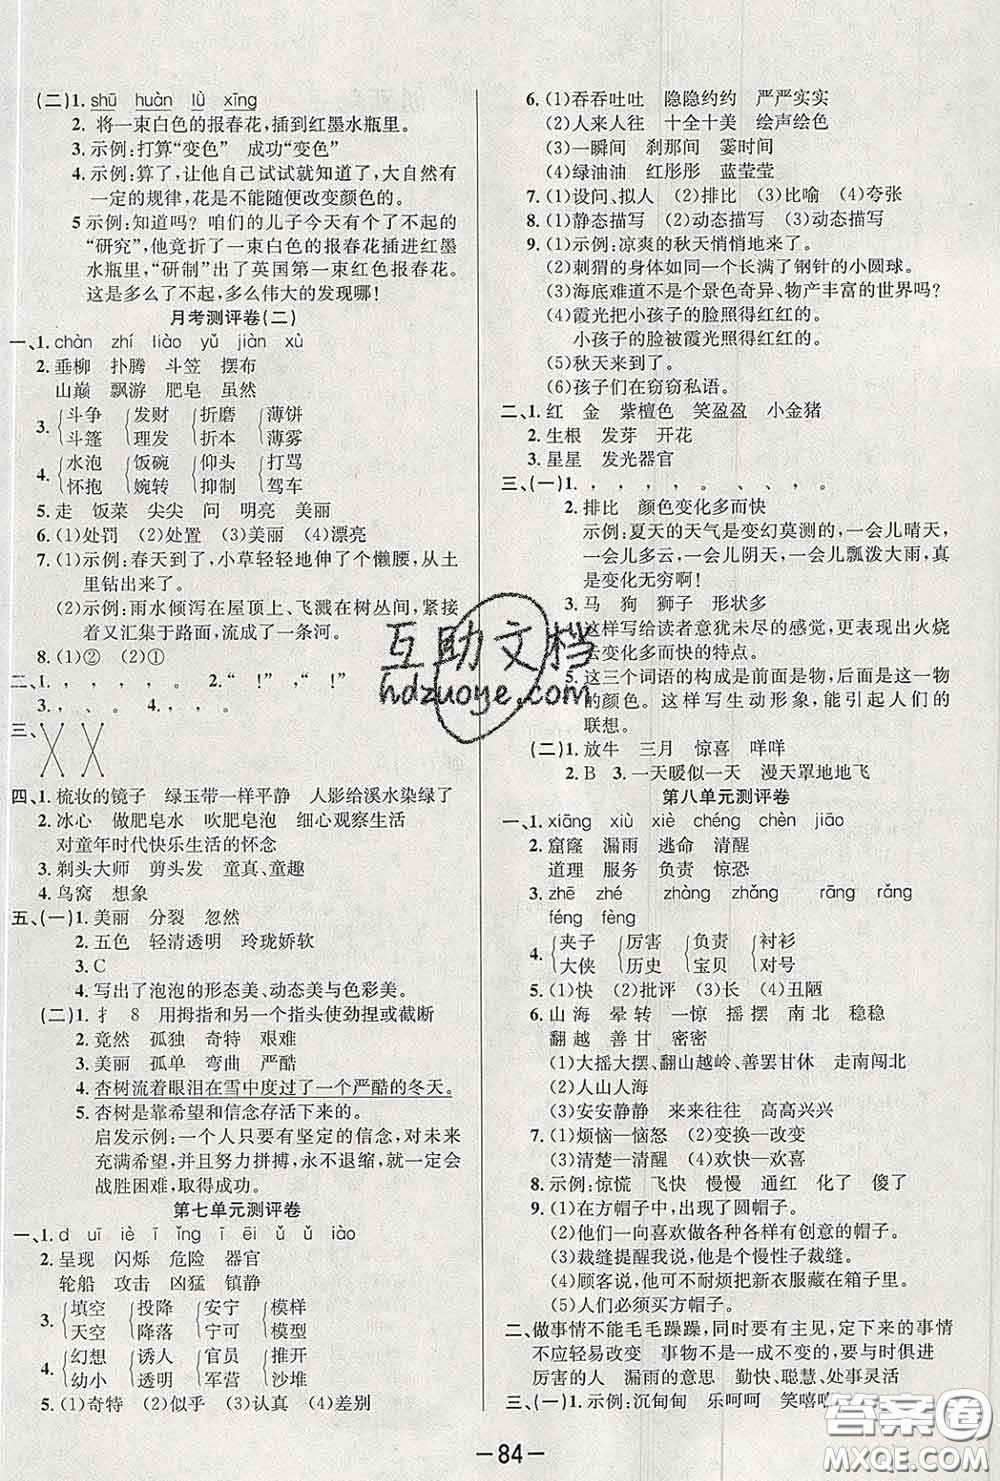 (二)1. shū huàn lǜ xīng
2. 将一束白色的报春花,插到红墨水瓶里。
3. 示例:打算“变色” 成功“变色”
4. 示例:算了,让他自己试试就知道了,大自然有
一定的规律,花是不能随便改变颜色的。
5 示例:知道吗? 咱们的儿子今天有个了不起的
“研究”,他竟折了一束白色的报春花插进红墨
水瓶里,“研制”出了英国第一束红色报春花。
这是多么了不起,多么伟大的发现哪!
月考测评卷(二)
一、1. chàn zhí liào yǔ jiàn xù
2. 垂柳 扑腾 斗笠 摆布
山巅 飘游 肥皂 虽然
3. 斗争 发财 折磨 薄饼
斗篷 理发 折本 薄雾
4. 水泡 饭碗 仰头 打骂
怀抱 婉转 抑制 驾车
5. 走 饭菜 尖尖 问 明亮 美丽
6. (1)处罚 (2)处置 (3)美丽 (4)漂亮
7. (1)示例:春天到了,小草轻轻地伸了个懒腰,从土
里钻出来了。
(2)示例:雨水倾泻在屋顶上、飞溅在树丛间,紧接
着又汇集于路面,流成了一条河。
8. (1)② (2)①
二、1. , , , , 。 2.“ !”,“ !”
3. , 、 。 4. , , 。
三、
四、1. 梳妆的镜子 绿玉带一样平静 人影给溪水染绿了
2. 冰心 做肥皂水 吹肥皂泡 细心观察生活
对童年时代快乐生活的怀念
3. 剃头大师 剪头发 童真、童趣
4. 鸟窝 想象
五、(一)1. 美丽 分裂 忽然
2. 五色 轻清透明 玲珑娇软
3. C
4. 写出了泡泡的形态美、动态美与色彩美。
(二)1. 扌 8 用拇指和另一个指头使劲捏或截断
2. 竟然 孤独 奇特 艰难
3. 美丽 孤单 弯曲 严酷
4. 杏树流着眼泪在雪中度过了一个严酷的冬天。
5. 杏树是靠希望和信念存活下来的。
启发示例:一个人只要有坚定的信念,对未来
充满希望,并且努力拼搏,永不退缩,就一定会
战胜困难,取得成功。
第七单元测评卷
一、1. d uī iè ī īng ī ēi ǔ ǔ iào
2. 呈现 闪烁 危险 器官
轮船 攻击 凶猛 镇静
3. 填空 投降 安宁 模样
天空 降落 宁可 模型
4. 幻想 诱人 官员 推开
幼小 透明 宫殿 沙堆
5. (1)奇特 (2)似乎 (3)认真 (4)差别
6. (1)吞吞吐吐 隐隐约约 严严实实
(2)人来人往 十全十美 绘声绘色
(3)一瞬间 刹那间 霎时间
(4)绿油油 红彤彤 蓝莹莹
7. (1)设问、拟人 (2)排比 (3)比喻 (4)夸张
8. (1)静态描写 (2)动态描写 (3)动态描写
9. (1)示例:凉爽的秋天悄悄地来了。
(2)刺猬的身体如同一个长满了钢针的小圆球。
(3)海底难道不是个景色奇异、物产丰富的世界吗?
(4)霞光把小孩子的脸照得红红的。
小孩子的脸被霞光照得红红的。
(5)秋天来到了。
(6)孩子们在窃窃私语。
二、1. 红 金 紫檀色 笑盈盈 小金猪
2. 生根 发芽 开花
3. 星星 发光器官
三、(一)1. , , , , 。 、 、 。
2. 排比 颜色变化多而快
示例:夏天的天气是变幻莫测的,一会儿晴天,
一会儿多云,一会儿阴天,一会儿瓢泼大雨,真
是变化无穷啊!
3. 马 狗 狮子 形状多
这样写给读者意犹未尽的感觉,更表现出火烧
云变化多而快的特点。
5. 这三个词语的构成是前面是物,后面是这一物
的颜色。这样写生动形象,能引起人们的
联想。
(二)1. 放牛 三月 惊喜 咩咩
2. B 3. 一天暖似一天 漫天罩地地飞
第八单元测评卷
一、1. xiāng xiù xiè chéng chèn jiāo
2. 窟窿 漏雨 逃命 清醒
道理 服务 负责 惊恐
3. zhē zhé zhàng zhǎng rāng rǎng
féng fèng
4. 夹子 厉害 负责 衬衫
大侠 历史 宝贝 对号
5. (1)快 (2)批评 (3)长 (4)丑陋
6. 山海 晕转 一惊 摇摆 南北 稳稳
翻越 善甘 密密
(1)大摇大摆、翻山越岭、善罢甘休 走南闯北
(2)人山人海
(3)安安静静 来来往往 高高兴兴
7. (1)烦恼—恼怒 (2)变换—改变
(3)清楚—清醒 (4)欢快—欢喜
8. 示例:惊慌 飞快 慢慢 通红 化 傻了
9. (1)在方帽子中,出现了圆帽子。
(2)他们一向喜欢做各种各样有创意的帽子。
(3)裁缝提醒我说,他是个慢性子裁缝。
(4)顾客说,他可不耐烦把新衣服藏在箱子里。
(5)人们必须买方帽子。
二、做事情不能毛毛躁躁,同时要有主见,定下来的事情
不应轻易改变 事物不是一成不变的,要与时俱进
厉害的人 漏雨的意思 勤快、聪慧、处事灵活
三、(一)1. 示例:沉甸甸 乐呵呵 笑嘻嘻
—84—
互助文档
hdzuoye.com
答案圈
MXQE.COM